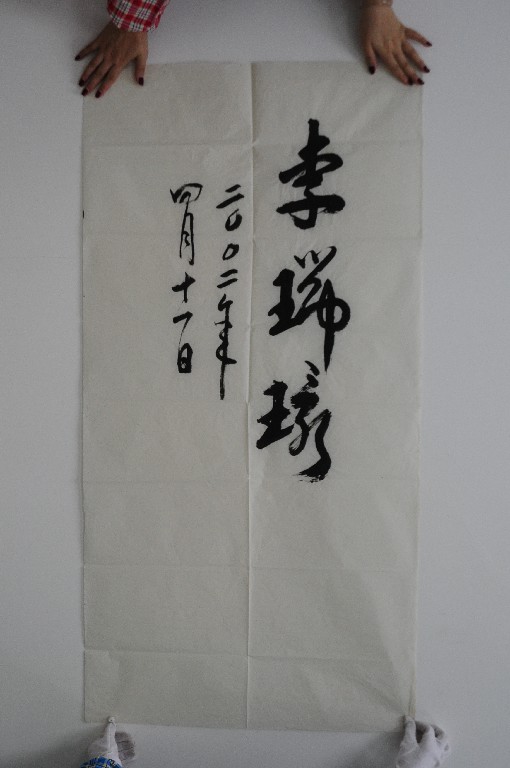 李瑞环
二〇〇二年
四月十一日